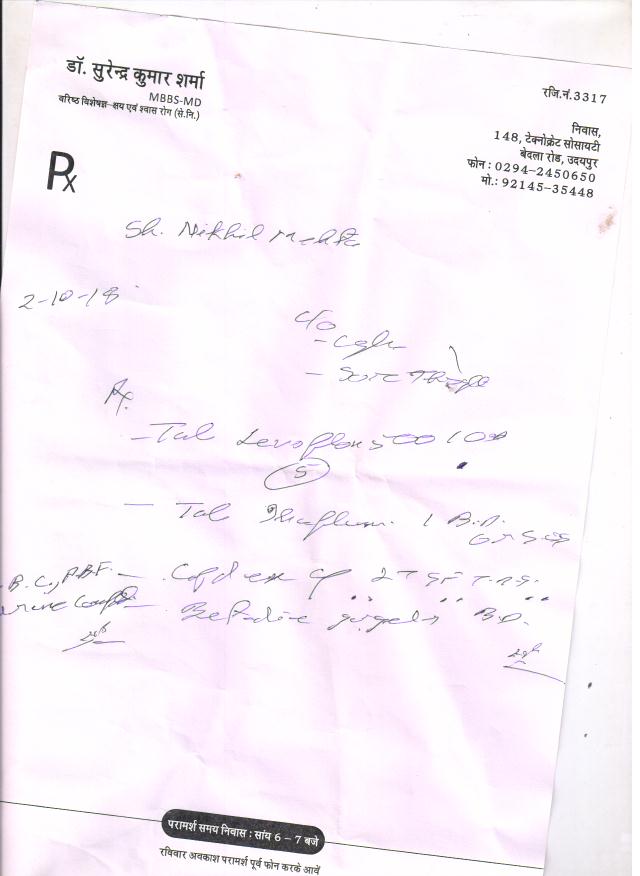 डॉ. सुरेन्द्र कुमार शर्मा
MBBS-MD
वरिष्ठ विशेषज्ञ-क्षय एवं श्वास रोग (से.नि.)
रजि.नं.3317
निवास,
148, टेक्नोक्रेट सोसायटी
बेदला रोड, उदयपुर
फोन : 0294-2450650
मो.: 92145-35448
Rx
Sh. Nikhil Mehta
2-10-18
C/o
- Sore
Rx
- Tab 500 1 OD
5
- Tab 1 B.D.
B.C., P.B.F.
- 2 TSF T.D.S.
- Betadine gargles B.D.
परामर्श समय निवास : सांय 6 – 7 बजे
रविवार अवकाश परामर्श पूर्व फोन करके आवें